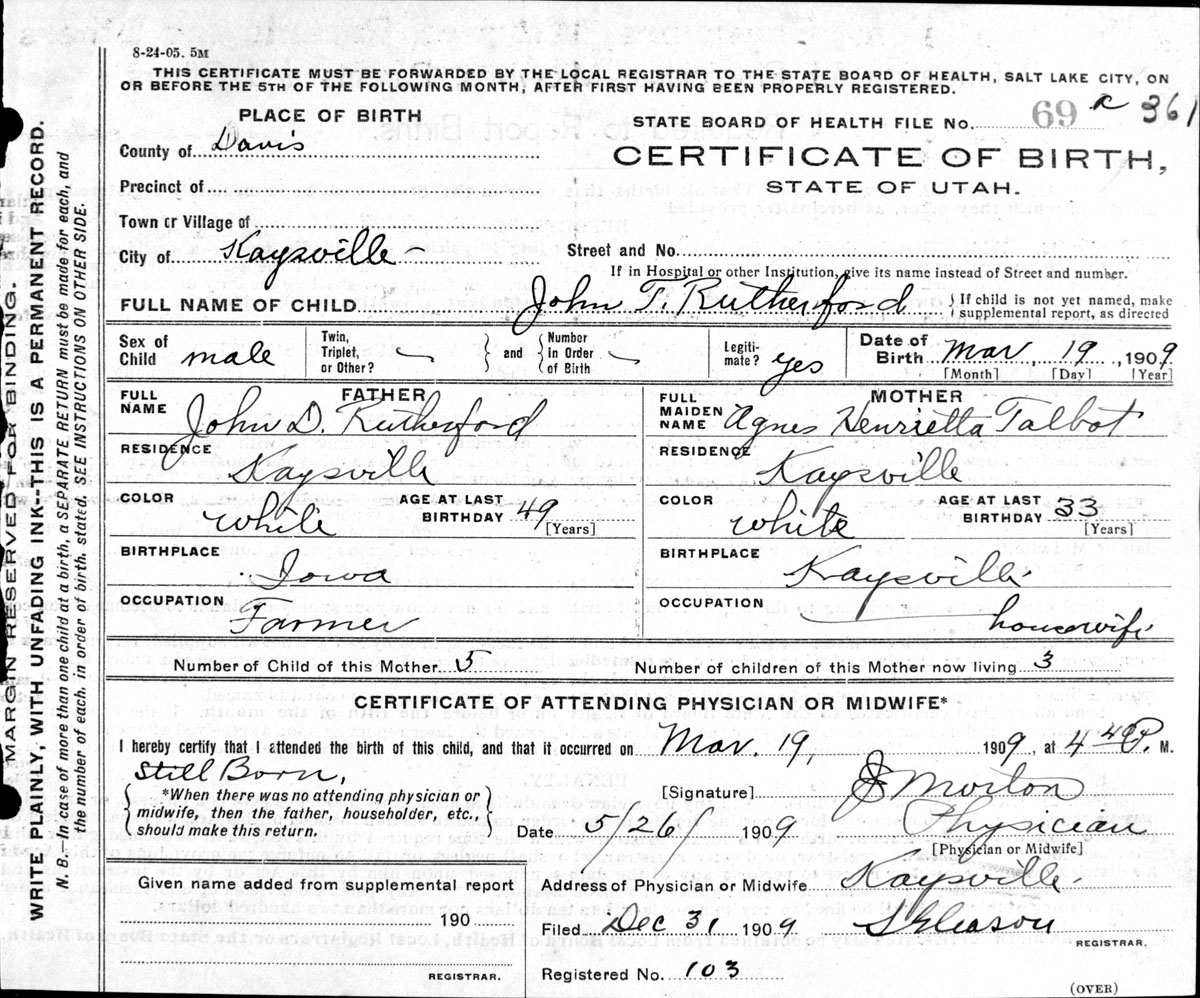 8-24-05. 5M
THIS CERTIFICATE MUST BE FORWARDED BY THE LOCAL REGISTRAR TO THE STATE BOARD OF HEALTH, SALT LAKE CITY, ON
OR BEFORE THE 5TH OF THE FOLLOWING MONTH, AFTER FIRST HAVING BEEN PROPERLY REGISTERED.
PLACE OF BIRTH
STATE BOARD OF HEALTH FILE No. 69 R 361
County of Davis
CERTIFICATE OF BIRTH,
STATE OF UTAH.
Precinct of
Town or Village of
City of Kaysville Street and No.
If in Hospital or other Institution, give its name instead of Street and number.
FULL NAME OF CHILD John T. Rutherford { If child is not yet named, make supplemental report, as directed
Sex of Child male Twin, Triplet, or Other? } and { Number in Order of Birth Legiti- mate? yes Date of Birth Mar, 19, 1909
[Month] [Day] [Year]
FATHER
FULL NAME John D. Rutherford
RESIDENCE Kaysville
COLOR White AGE AT LAST BIRTHDAY 49 [Years]
BIRTHPLACE Iowa
OCCUPATION Farmer
MOTHER
FULL MAIDEN NAME Agnes Henrietta Talbot
RESIDENCE Kaysville
COLOR White AGE AT LAST BIRTHDAY 33 [Years]
BIRTHPLACE Kaysville
OCCUPATION housewife
Number of Child of this Mother 5 Number of children of this Mother now living 3
CERTIFICATE OF ATTENDING PHYSICIAN OR MIDWIFE*
I hereby certify that I attended the birth of this child, and that it occurred on Mar. 19, 1909, at 4 40 P. M.
Still Born,
{ *When there was no attending physician or midwife, then the father, householder, etc., should make this return. }
[Signature] J Morton
Date 5/26/ 1909 Physician
[Physician or Midwife]
Given name added from supplemental report
190
REGISTRAR.
Address of Physician or Midwife Kaysville
Filed Dec 31 1909 S Gleason
REGISTRAR.
Registered No. 103
(OVER)
MARGIN RESERVED FOR BINDING.
WRITE PLAINLY, WITH UNFADING INK--THIS IS A PERMANENT RECORD.
N. B. In case of more than one child at a birth, a SEPARATE RETURN must be made for each, and
the number of each, in order of birth, stated. SEE INSTRUCTIONS ON OTHER SIDE.